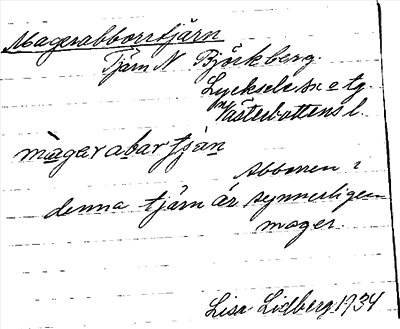 Magerabborrtjärn
Tjärn N Björkberg.
Lycksele sn o tg.
Västerbottens l.
mager abar tjan
Abborren i
denna tjärn är synnerligen
mager.
Lisa Lidberg 1934